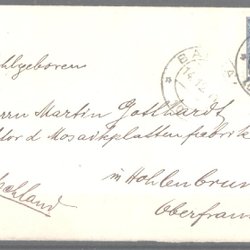 hlgeboren
errn Martin Gotthardt
ktor d. Mosaikplattenfabrik
in Hohlenbrunn
Oberfran
schland